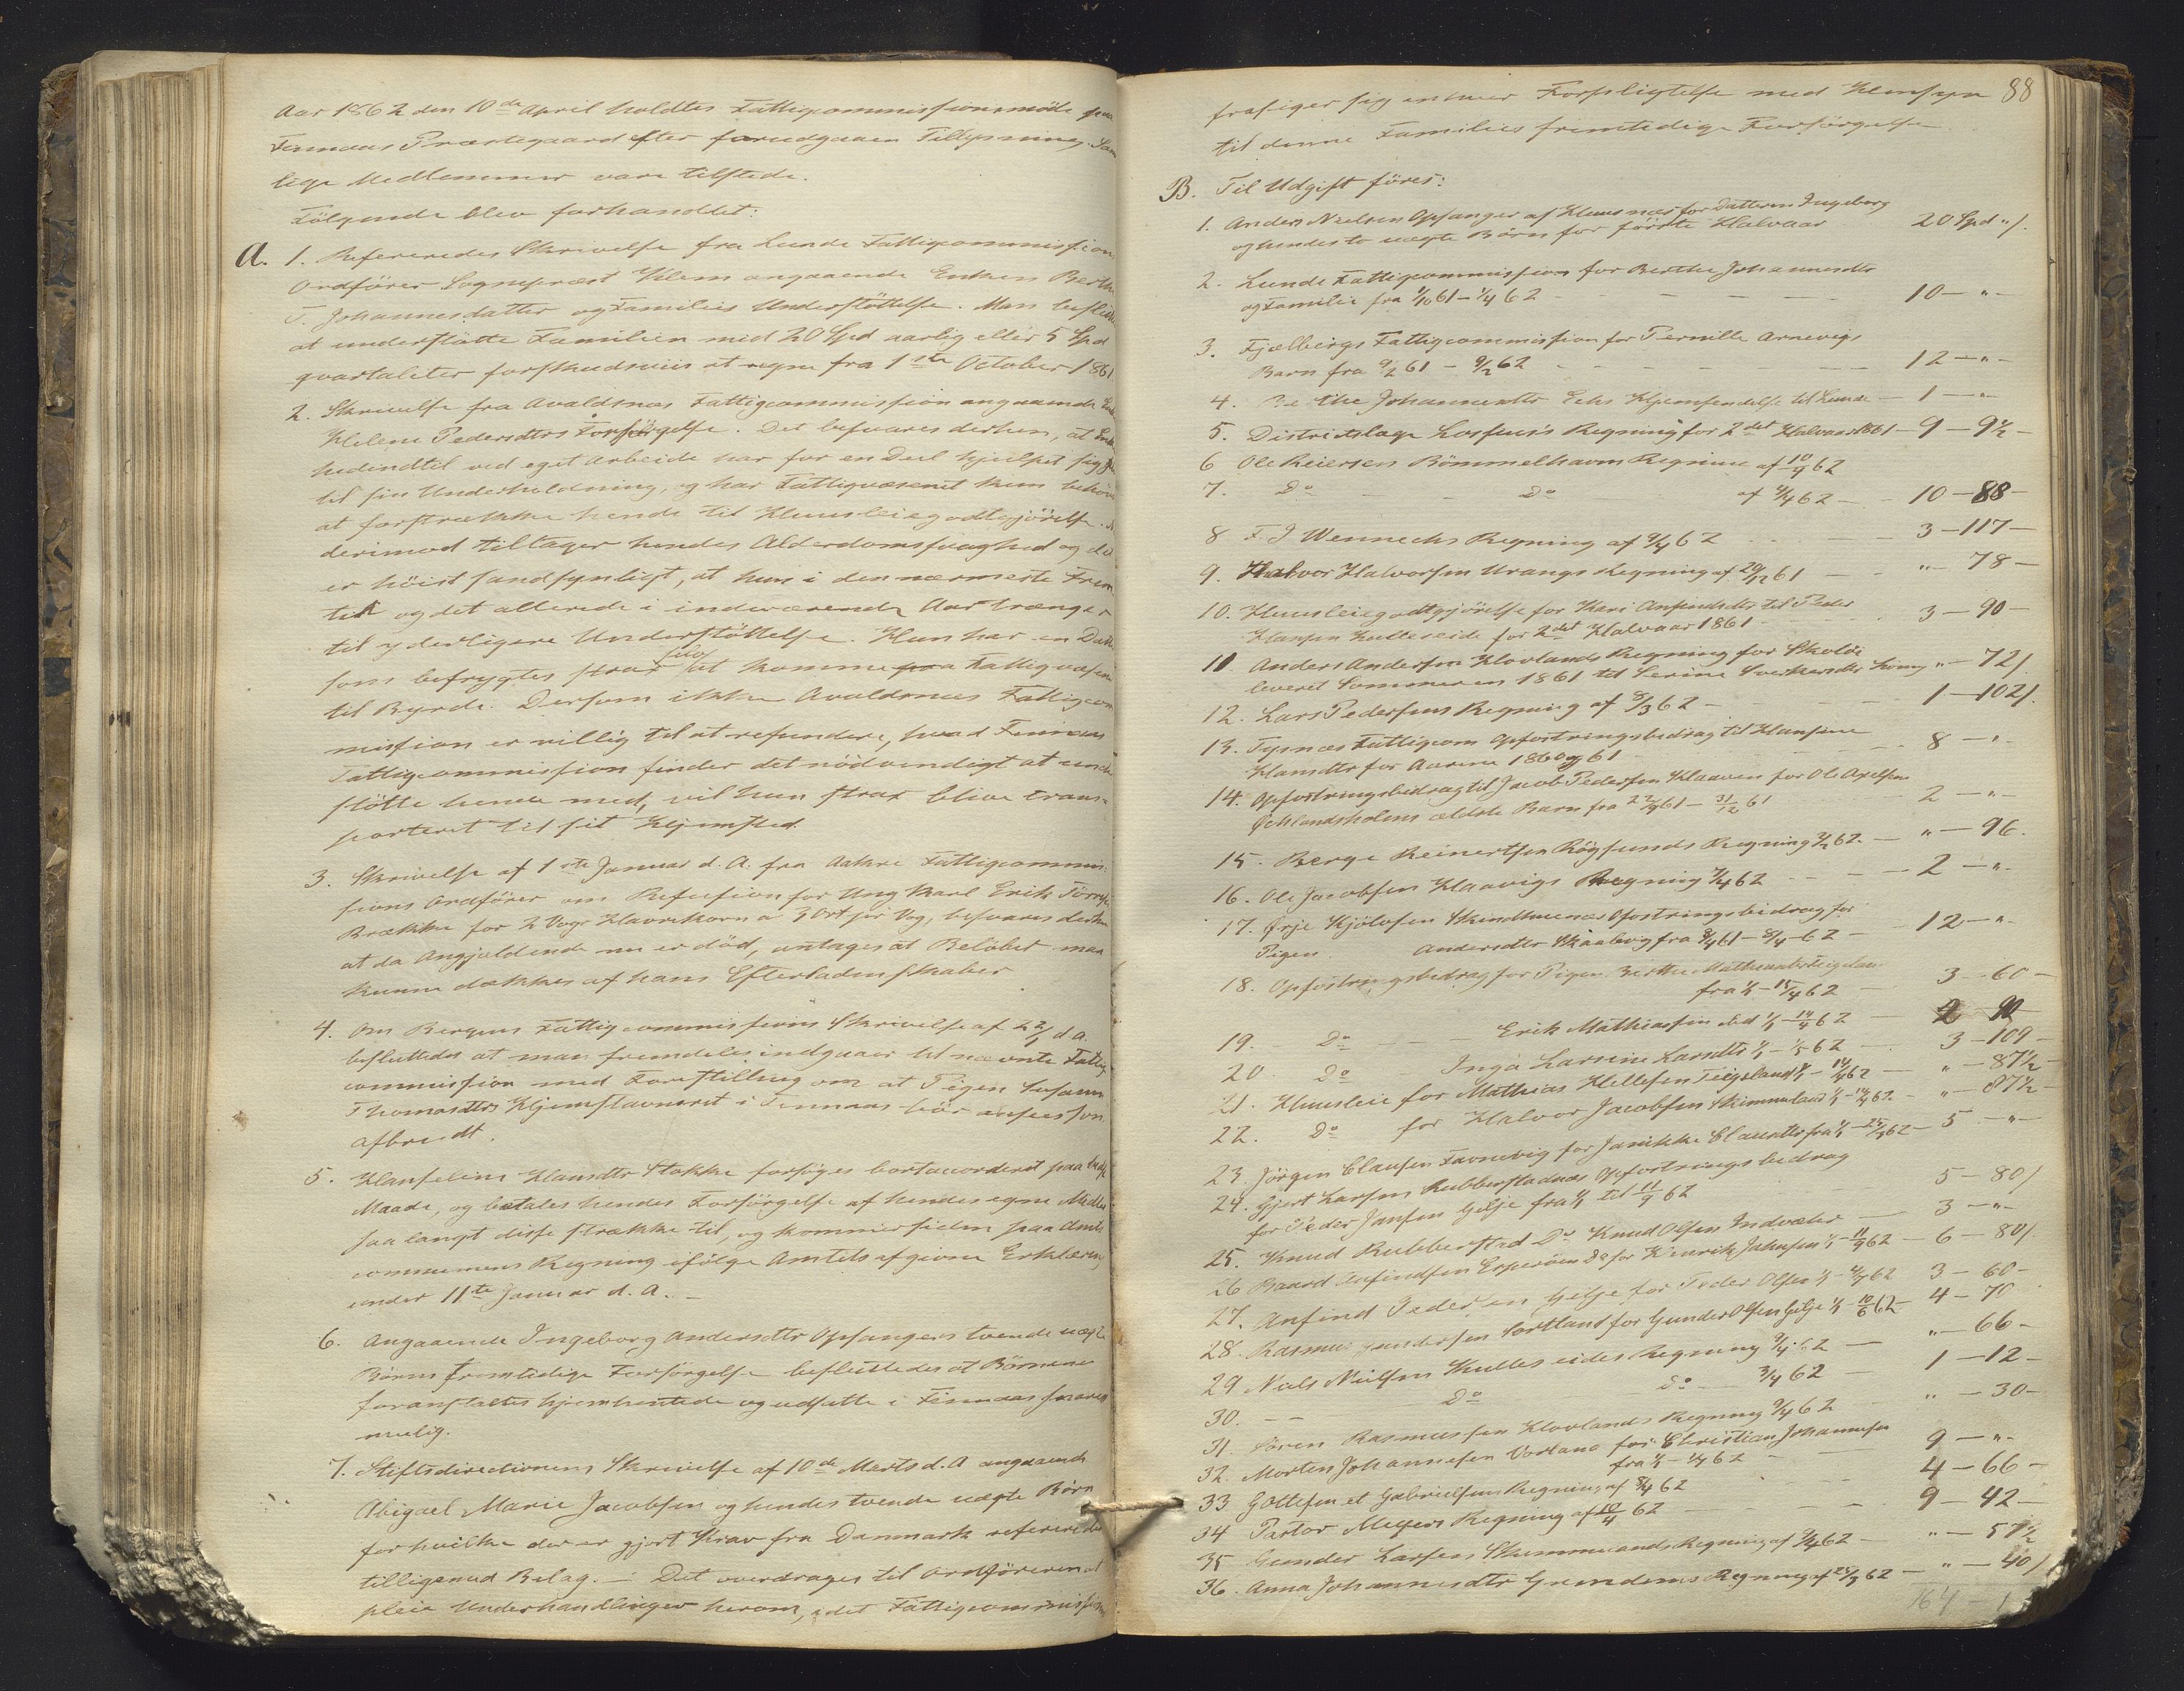 Aar 1862 den 10de April holdtes Fattigcommissionsmöde paa
Finnaas Præstegaard efter forudgaaen Tillysning. Sam
lige Medlemmer vare tilstede.
Fölgende blev forhandlet:
A. 1. Refereredes Skrivelse fra Lunde Fattigcommission
Ordförer Sognepræst Klem angaaende Enken Berthe
T. Johannesdatter og Families Understöttelse. Man beslutte
at understötte Familien med 20 Spd aarlig eller 5 Spd
qvartaliter forskudsviis at regne fra 1ste October 1861
2. Skrivelse fra Avaldsnæs Fattigcommission angaaende Enke
Helene Pedersdtrs Forsörgelse. Det besvares derhen, at Enk
hidindtil ved eget Arbeide har for en Deel hjulpet sig
til sin Underholdning, og har Fattigvæsenet kun behöv
at forstrække hende til Huusleiegodtgjörelse.
derimod tiltager hendes Alderdomssvaghed og det
er höist sandsynligt, at hun i den nærmeste Frem
tid og det allerede i indeværende Aar trænger
til yderligere Understöttelse. Hun har en Datter
som befrygtes strax selv at komme paa Fattigvæsen
til Byrde. Dersom ikke Avaldsnæs Fattigcom
mission er villig til at refundere, hvad Finnaas
Fattigcommission finder det nödvendigt at under
stötte hende med, vil hun strax blive trans-
porteret til sit Hjemsted.
3. Skrivelse af 1ste Januar d. A. fra Aakre Fattigcommis-
sions Ordförer om Refusion for Ung Karl Erik Törres
Brække for 2 Voge Havrekorn a 3 Ort pr Vog, besvares derhen
at da Angjældende nu er död, antages at Belöbet maa
kunne dækkes af hans Efterladenskaber
4. Om Bergens Fattigcommissions Skrivelse af 22/1 d. A.
besluttedes at man fremdeles indgaaer til nævnte Fattig
commission med Forestilling om at Pigen Susanne
Thomasdtrs Hjemstavnsret i Finnaas bör ansees som
afbrudt.
5. Hanseline Hansdtr Stokke forsöges bortaccorderet paa bedst
Maade, og betales hendes Forsörgelse af hendes egne Midler
saa langt disse strække til, og kommer siden paa Amts
communens Regning ifölge Amtets afgivne Erklæring
under 11te Januar d. A. -
6. Angaaende Ingeborg Andersdtr Opsangers tvende uægte
Börns fremtidige Forsörgelse besluttedes at Börnene
foranstaltes hjemhentede og udsatte i Finnaas snarest
muelig.
7. Stiftsdirectionens Skrivelse af 10de Marts d. A angaaende
Abigael Marie Jacobsen og hendes tvende uægte Börn
for hvilke der er gjort Krav fra Danmark refereredes
tilligemed Bilag. - Det overdrages til Ordföreren at
pleie Underhandlinger herom, idet Fattigcommission
88
frasiger sig enhver Forpligtelse med Hensyn
til denne Families fremtidige Forsörgelse
B. Til Udgift föres:
1. Anders Nielsen Opsanger af Huusnær for Datteren Ingeborg
og hendes to uægte Börn for förste Halvaar 20 Spd " /.
2. Lunde Fattigcommission for Berthe Johannesdtr
og Familie fra 1/10 61 - 1/4 62 - - - - 10 - " -
3. Fjælbergs Fattigcommission for Pernille Arnevigs
Barn fra 9/2 61 - 9/2 62 - - - - - 12 - " -
4. Berthe Johannesdtr Eehs Hjemsendelse til Lunde - 1 - " -
5. Districtslæge Losfius's Regning for 2det Halvaar 1861 - 9 - 9 1/2 -
6 Ole Reiersen Bömmelhavns Regning af 10/4 62
7. Do - - Do af 4/4 62 - - 10 - 88 -
8 F. J Wennechs Regning af 9/4 62 - - - 3 - 117 -
9. Halvor Halvorsen Urangs Regning af 29/12 61 - - " - 78 -
10. Huusleiegodtgjörelse for Kari Anfindsdtr til Peder
Hansen Kulleseide for 2det Halvaar 1861 - - 3 - 90 -
11. Anders Andersen Hovlands Regning for Skolöi
leveret Sommeren 1861 til Serine Sverkersdtr " - 72 /.
12. Lars Pedersens Regning af 8/3 62 - - - 1 - 102 /.
13. Tysnæs Fattigcom Opfostringsbidrag til Hansine
Hansdtr for Aarene 1860 og 61 - - - 8 - " -
14. Opfostringsbidrag til Jacob Pedersen Haaven for Ole Axelsen
Öchlandsholms ældste Barn fra 22/9 61 - 31/12 61 2 - " -
15. Berge Reinertsen Rögsunds Regning 2/2 62 - " - 96.
16. Ole Jacobsen Haavigs Regning 7/4 62 - - - 2 - " -
17. Örje Kjölvsen Skindhuenæs Opfostringsbidrag for
Pigen Andersdtr Skaalevig fra 8/4 61 - 8/4 62 - - 12 - " -
18. Opfostringsbidrag for Pigen Berthe Mathiasdtr Teigeland
fra 1/1 - 15/4 62 - 3 - 60 -
19. - Do - - Erik Mathiassen ibid 1/1 - 14/4 62 - 2 - 90
20 - Do - Inga Larsine Larsdtr 1/1 - 1/5 62 - 3 - 109 -
21. Huusleie for Mathias Hellesen Teigeland 1/1 - 14/4 62 - " - 87 1/2 -
22. Do for Halvor Jacobsen Skimmeland 1/1 - 14/4 62 - " - 87 1/2 -
23. Jörgen Clausen Favnevig for Janikke Clausdtr fra 1/1 - 25/4 62 - 5 - " -
24. Gjert Larsen Rubbestadnæs Opfostringsbidrag
for Peder Jansen Gilje fra 1/1 til 11/9 62 - 5 - 80 /
25. Knud Rubbestad Do Knud Olsen Indvær - 3 - " -
26 Baard Anfindsen Esperöen Do for Henrik Johnsen 1/1 - 11/9 62 - 6 - 80 /.
27. Anfind Pedersen Gilje for Peder Olsen 1/1 - 4/7 62 3 - 60 -
28. Rasmus Gundersen Sortland for Gunder Olsen Gilje 1/1 - 10/6 62 - 4 - 70
29 Niels Nielsen Kulleseides Regning 9/4 62 - " - 66 -
30. - - Do - Do - 3/4 62 - 1 - 12 -
31. Sören Rasmussen Hovlands Regning 9/4 62 " - 30 -
32. Morten Johannesen Vorland for Christian Johannesen
fra 1/1 - 1/7 62 - 9 - " -
33 Gottesen et Gabrielsens Regning af 8/4 62 - - 4 - 66 -
34 Pastor Meyers Regning af 10/4 62 - - - 9 - 42 -
35 Gunder Larsen Skimmelands Regning af 9/4 62 - " - 57 1/2
36. Anna Johannesdtr Grindems Regning af 25/3 62 - " - 40 /
164 - 1